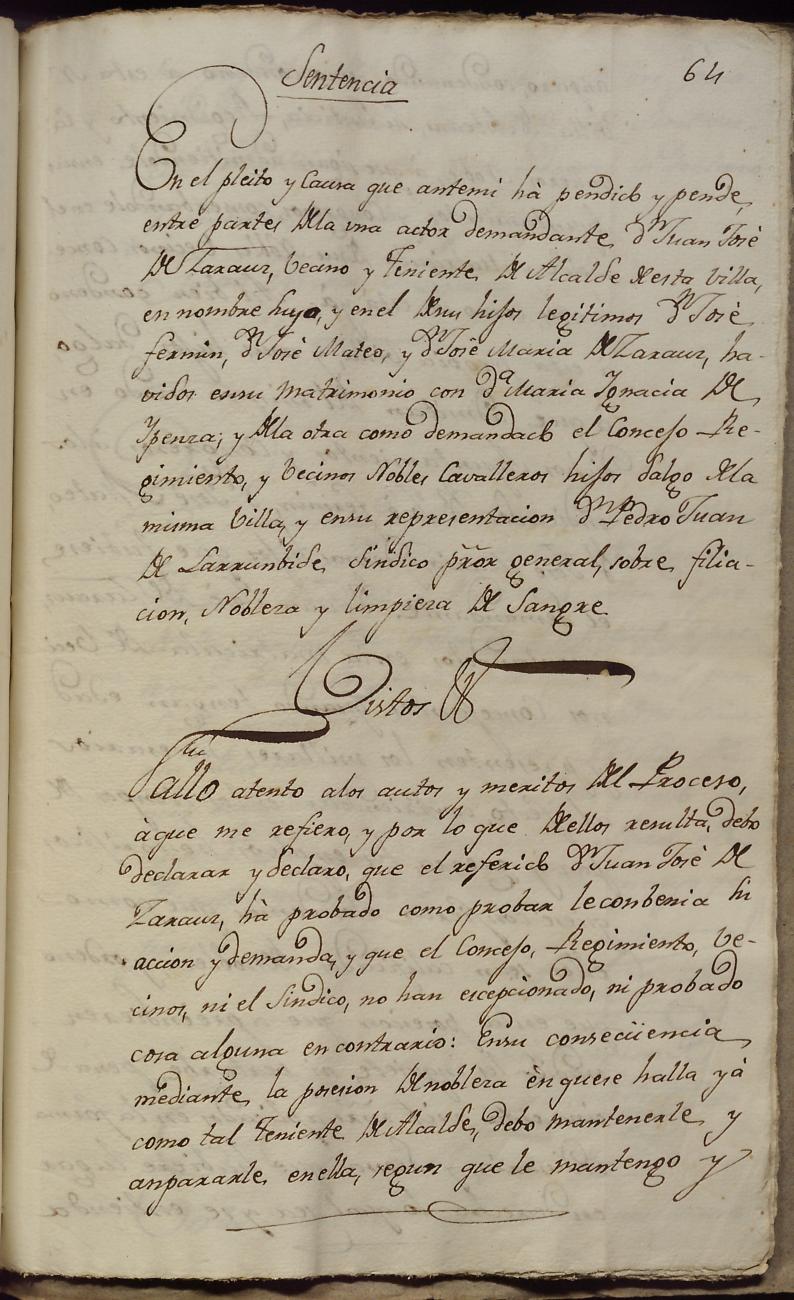 Sentencia
64
En el pleito y Causa que antemi hà pendido y pende
entre partes dela una actor demandante Dn Juan José
de Zarauz, Vecino y Teniente de Alcalde de esta Villa,
en nombre suyo, y en el de sus hijos legitimos Dn José
fermin, Dn José Mateo, y Dn José Maria de Zarauz, ha-
vidos en su matrimonio con Da Maria Ignacia de
Ypenza; y dela otra como demandado el Concejo Re-
gimiento, y Vecinos Nobles Cavalleros hijos dalgo dela
misma Villa, y en su representacion Dn Pedro Juan
de Larrunbide Sindico prõr general, sobre filia-
cion, Nobleza y limpieza de Sangre
Vistos &
Fallo atento alos autos y meritos del Proceso,
àque me refiero, y por lo que de ellos resulta, debo
declarar y declaro, que el referido Dn Juan José de
Zarauz, hà probado como probar le conbenia su
accion y demanda, y que el Concejo, Regimiento, Ve-
cinos, ni el Sindico, no han escepcionado, ni probado
cosa alguna en contrario: En su conseqüencia
mediante la posesion de nobleza èn que se halla yà
como tal Teniente de Alcalde, debo mantenerle y
anpararle en ella, segun que le mantengo y